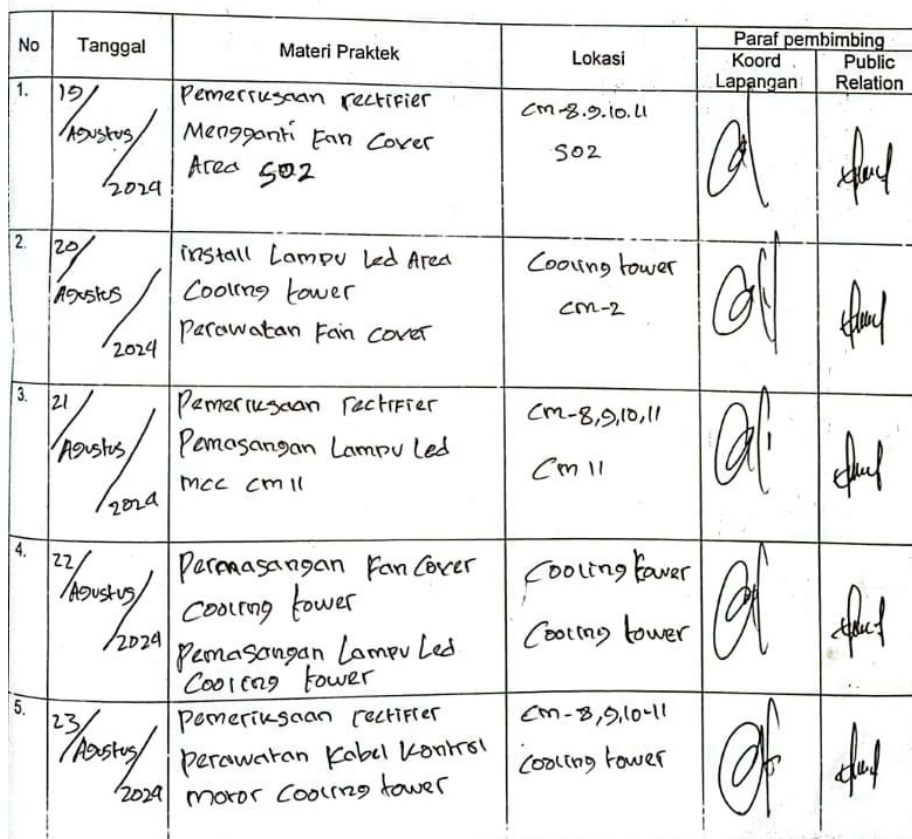 No Tanggal Materi Praktek Lokasi Paraf pembimbing
Koord Lapangan Public Relation
1. 19/Agustus/2024
Pemeriksaan rectifier
Mengganti Fan Cover
Area SO2
Cm-8.9.10.11
SO2
2. 20/Agustus/2024
install Lampu Led Area
Cooling tower
Perawatan Fan cover
Cooling tower
cm-2
3. 21/Agustus/2024
Pemeriksaan rectifier
Pemasangan Lampu Led
mcc cm 11
Cm-8,9,10,11
Cm 11
4. 22/Agustus/2024
Pemasangan Fan Cover
Cooling tower
Pemasangan Lampu Led
Cooling tower
Cooling tower
Cooling tower
5. 23/Agustus/2024
Pemeriksaan rectifier
perawatan Kabel Kontrol
motor Cooling tower
Cm-8,9,10-11
cooling tower